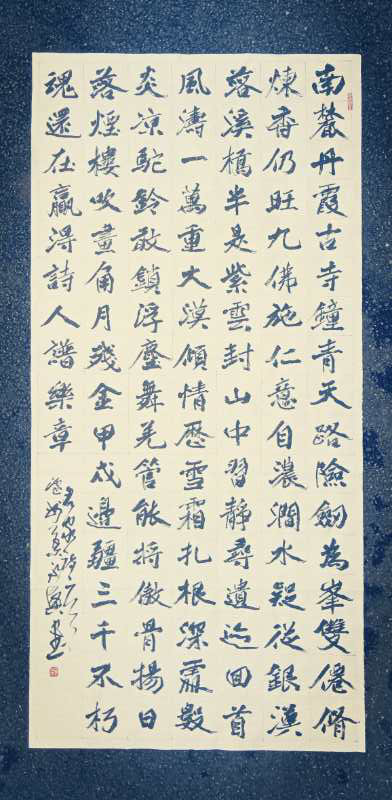 南麓丹霞古寺鐘青天路險劍為峯雙僊脩
煉香仍旺九佛施仁意自濃澗水疑從銀漢
落溪橋半是紫雲封山中習靜尋遺迹回首
風濤一萬重大漠傾情歷雪霜扎根深處數
炎凉駝鈴敢鎖浮塵舞羌管能將傲骨揚日
落煙樓吹畫角月殘金甲戍邊疆三千不朽
魂還在贏得詩人譜樂章